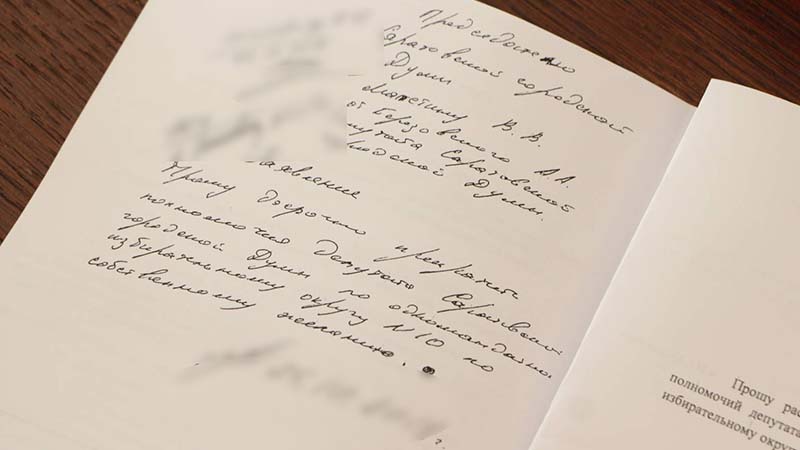 Председателю
Саратовской городской
Думы
В. В.
Березовского А.А.
Саратовской
Думы.
Прошу досрочно прекратить
полномочия депутата Саратовской
городской Думы по одномандатно
избирательному округу №10 по
собственному желанию.
г.
Прошу рас
полномочий депутата
избирательному округу